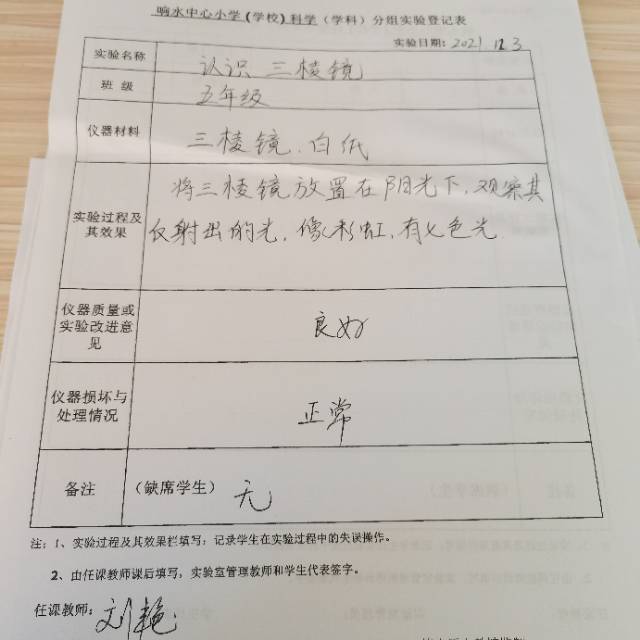 响水中心小学(学校)科学(学科)分组实验登记表
实验日期：2021 12.3
实验名称 认识 三棱镜
班 级 五年级
仪器材料 三棱镜、白纸
实验过程及其效果 将三棱镜放置在阳光下，观察其
反射出的光，像彩虹，有七色光
仪器质量或
实验改进意
见 良好
仪器损坏与
处理情况 正常
备注 (缺席学生) 无
注：1、实验过程及其效果栏填写：记录学生在实验过程中的失误操作。
2、由任课教师课后填写，实验室管理教师和学生代表签字。
任课教师：刘艳